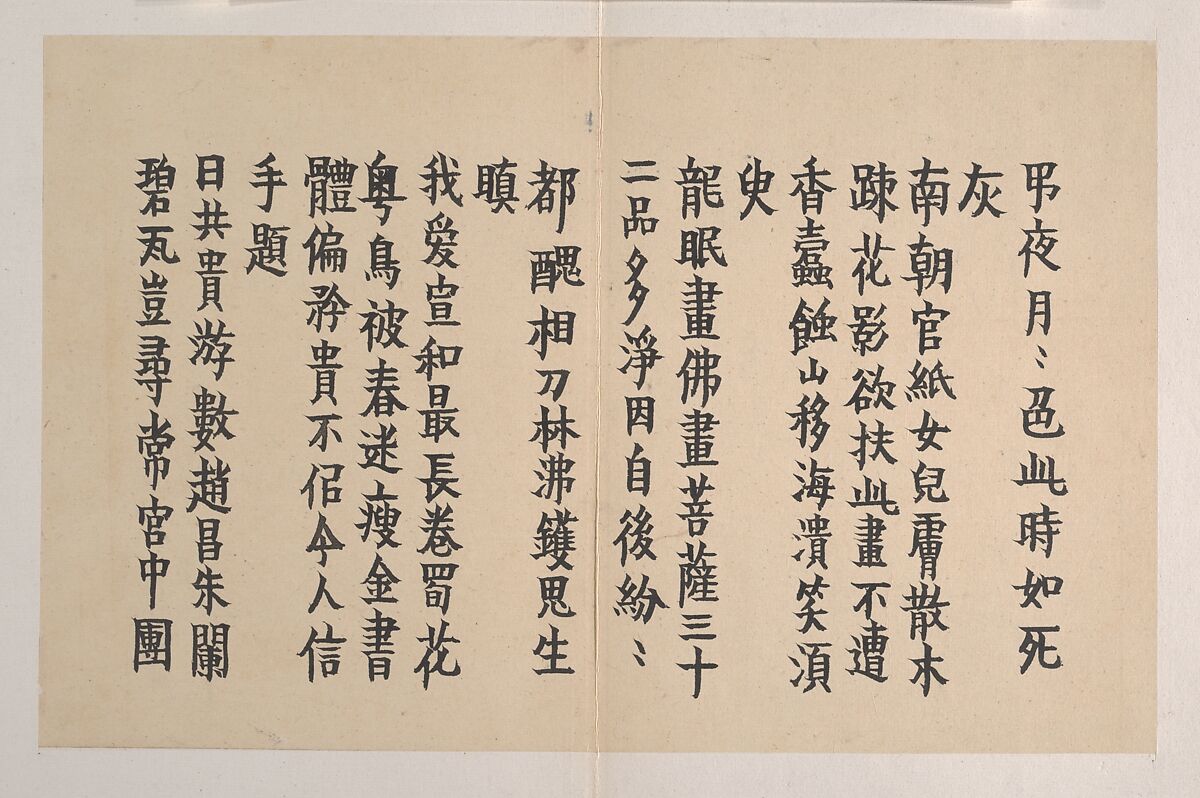 弔夜月〻色此時如死
灰
南朝官紙女兒膚散木
疎花影欲扶此畫不遭
香蠹蝕山移海潰笑須
臾
龍眠畫佛畫菩薩三十
二品多淨因自後紛〻
都醜相刀林沸鑊思生
瞋
我爱宣和最長卷蜀花
粵鳥被春迷瘦金書
體偏矜貴不侶今人信
手題
日共貴游數趙昌朱闌
碧瓦豈尋常宮中團